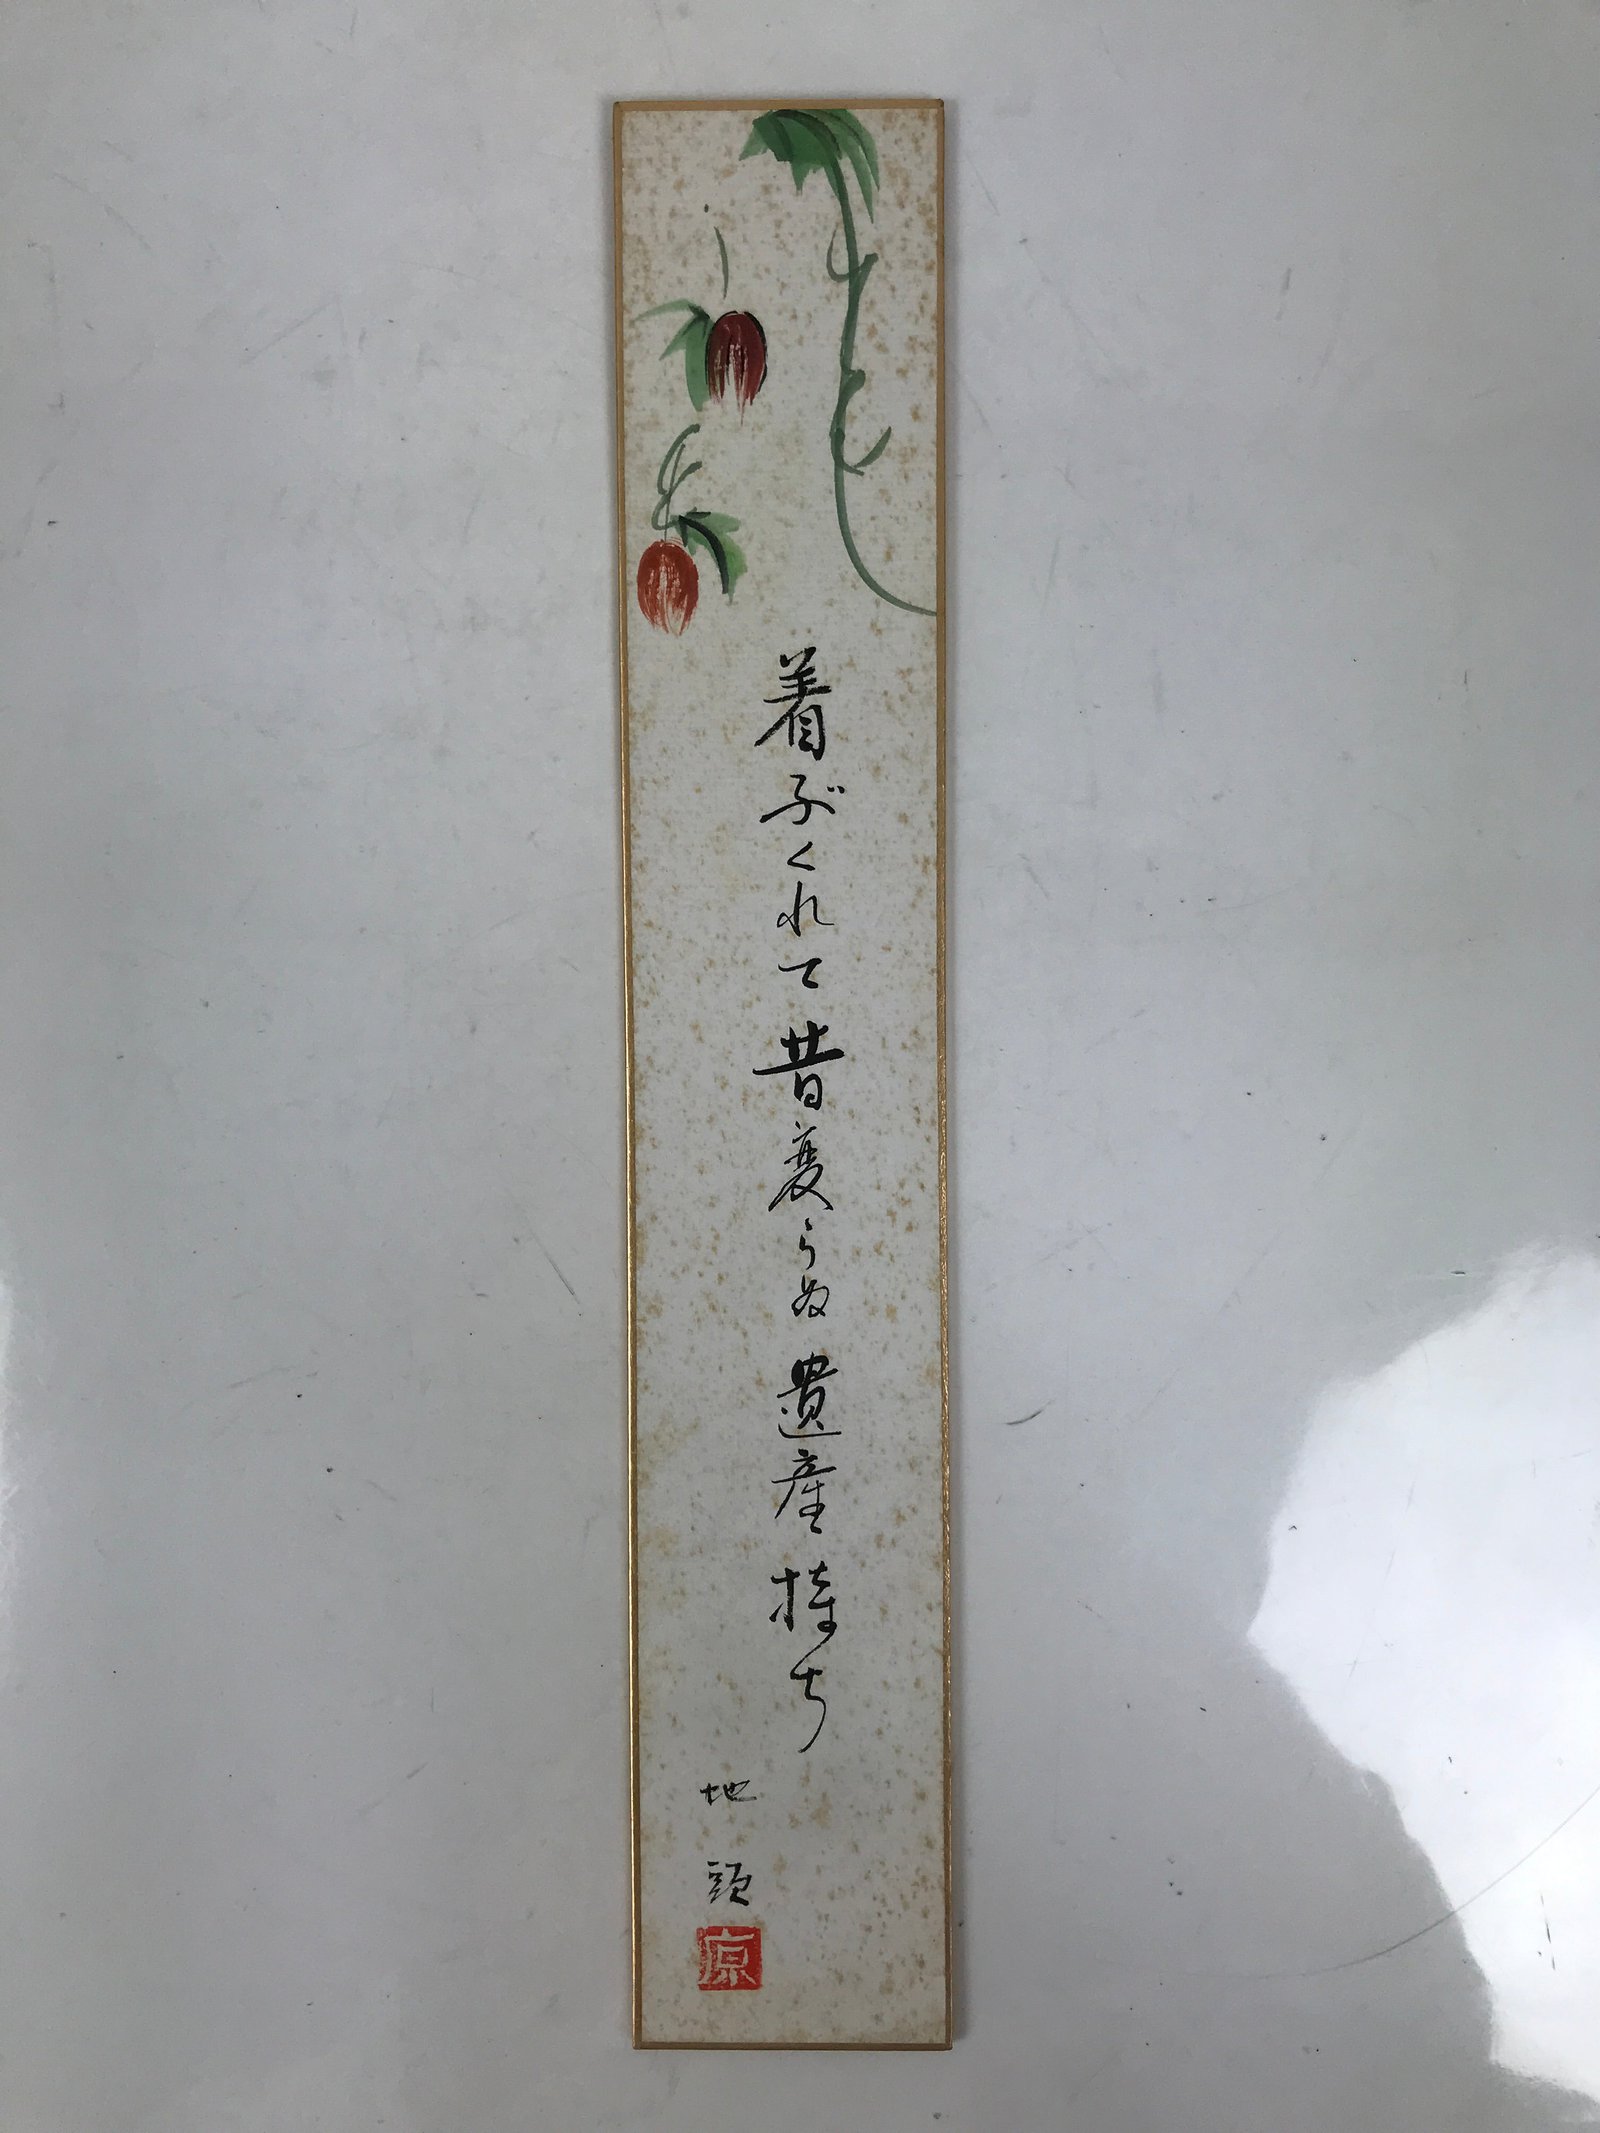 着ぶくれて昔変らぬ遺産持ち
地頭